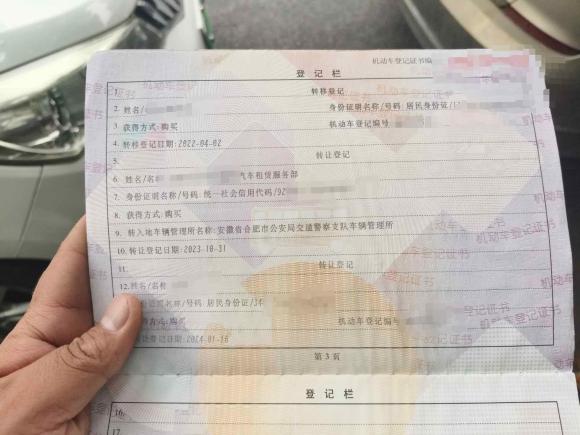 机动车登记证书编
登记栏
1. 转移登记
2. 姓名/ 身份证明名称/号码:居民身份证/
3. 获得方式:购买 机动车登记编号
4. 转移登记日期:2022-04-02
5. 转让登记
6. 姓名/名 汽车租赁服务部
7. 身份证明名称/号码:统一社会信用代码/92
8. 获得方式:购买
9. 转入地车辆管理所名称:安徽省合肥市公安局交通警察支队车辆管理所
10. 转让登记日期:2023-10-31
11. 转让登记
12.姓名/名称
证明名称/号码:居民身份证/34
方式:购买 机动车登记编号
登记日期:2024-01-16
第3页
登记栏
16.
17.